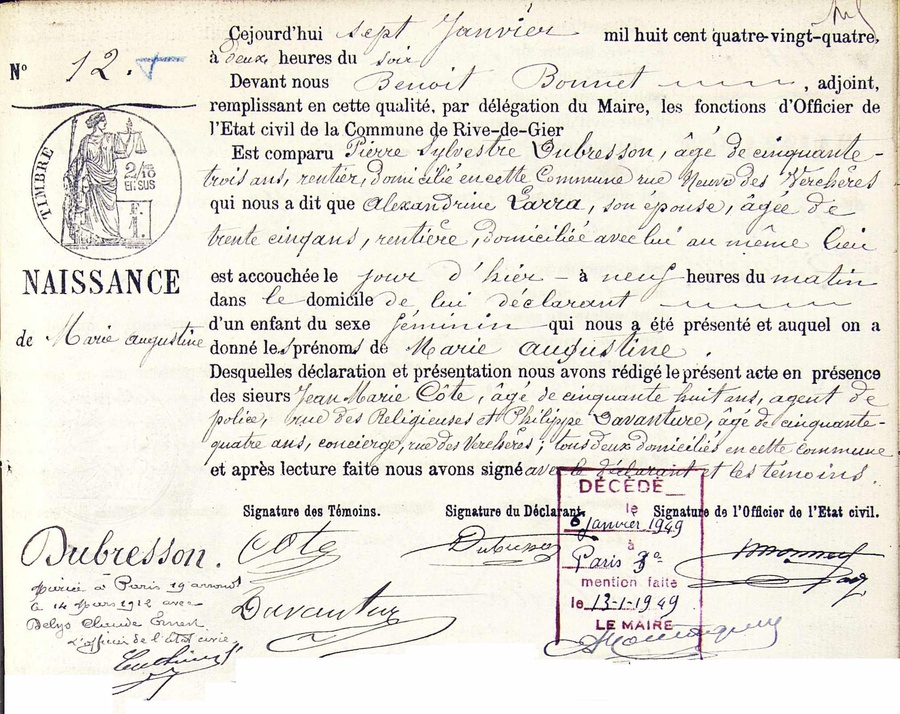 Cejourd'hui sept Janvier mil huit cent quatre-vingt-quatre,
N° 12.
à deux heures du soir
Devant nous Benoit Bonnet , adjoint,
remplissant en cette qualité, par délégation du Maire, les fonctions d'Officier de
l'Etat civil de la Commune de Rive-de-Gier
Est comparu Pierre Sylvestre Dubresson, âgé de cinquante-
trois ans, rentier, domicilié en cette Commune rue Neuve des Verchères
qui nous a dit que Alexandrine Larra, son epouse, âgée de
trente cinq ans, rentière, domiciliée avec lui au même lieu
est accouchée le jour d'hier - à neuf heures du matin
dans le domicile de lui déclarant
d'un enfant du sexe féminin qui nous a été présenté et auquel on a
donné les prénoms de Marie augustine.
Desquelles déclaration et présentation nous avons rédigé le présent acte en présence
des sieurs Jean Marie Côte, âgé de cinquante huit ans, agent de
police, rue des Religieuses et Philippe Davanture, âgé de cinquante-
quatre ans, concierge, rue des Verchères ; tous deux domiciliés en cette commune
et après lecture faite nous avons signé avec le déclarant et les témoins.
TIMBRE
2/10
EN SUS
F.
1.
NAISSANCE
de Marie augustine
Signature des Témoins.
Signature du Déclarant.
Signature de l'Officier de l'Etat civil.
Dubresson.
Cote
Dubresson
Bonnet
Davantur
Mariée à Paris 19 arrondt
le 14 Mars 1912 avec
Delys Claude Ernest
L'officier de l'Etat civil
DÉCÉDÉ
le
6 Janvier 1949
à
Paris
mention faite
le 13-1-1949
LE MAIRE